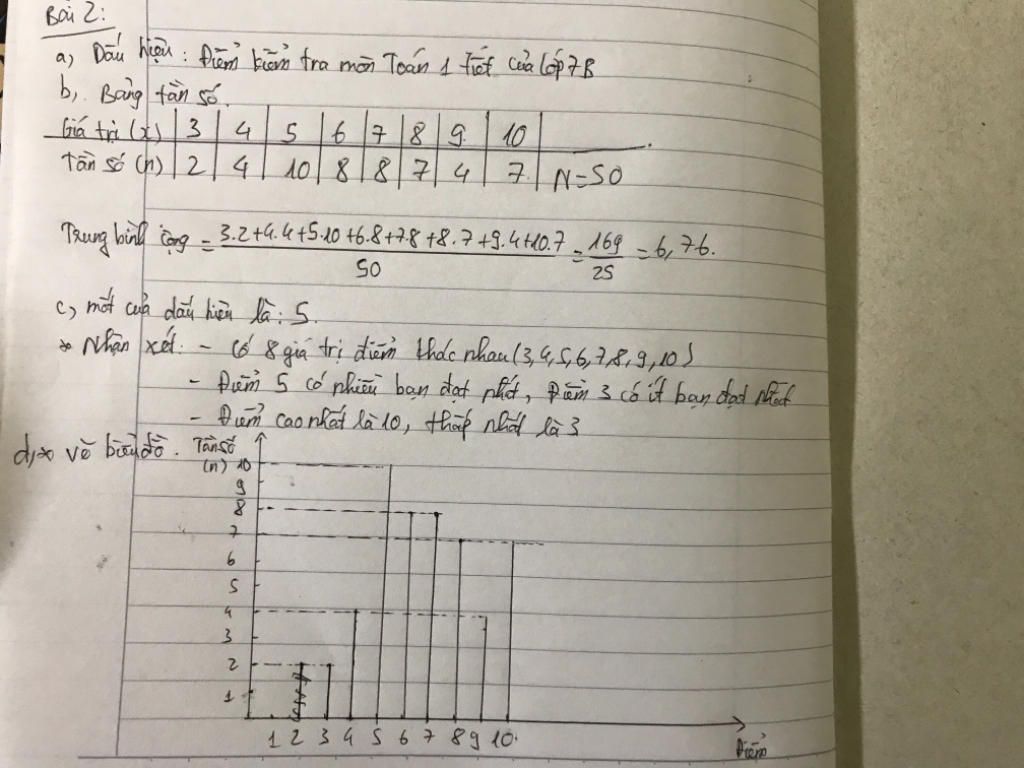 Bài 2:
a, Dấu hiệu: Điểm kiểm tra môn Toán 1 tiết của lớp 7B
b, Bảng tần số.
Giá trị (x) 3 4 5 6 7 8 9 10
Tần số (n) 2 4 10 8 8 7 4 7 N=50
Trung bình cộng = 3.2+4.4+5.10+6.8+7.8+8.7+9.4+10.7 = 169 = 6,76.
50 25
c, mốt của dấu hiệu là: 5.
* Nhận xét: - Có 8 giá trị điểm khác nhau (3,4,5,6,7,8,9,10)
- Điểm 5 có nhiều bạn đạt nhất, Điểm 3 có ít bạn đạt nhất
- Điểm cao nhất là 10, thấp nhất là 3
d, * vẽ biểu đồ. Tần số
(n) 10
9
8
7
6
5
4
3
2
1
1 2 3 4 5 6 7 8 9 10
Điểm